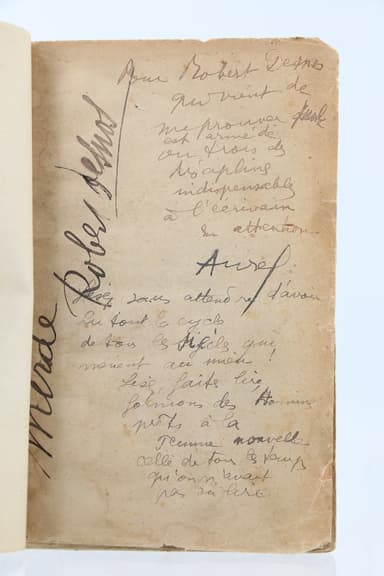 Pour Robert Desnos
qui vient de
me prouver
est armé de
ou trois des
disciplines
indispensables
à l'écrivain
en attendant.
Aurel.
Lisez sans attendre d'avoir
lu tout le cycle
de tous les siècles qui
mènent au mien !
Lisé, faite lire,
formons des Hommes
prêts à la
Femme nouvelle
celle de tous les temps
qu'on n'avait
pas su lire
Merde Robert Desnos